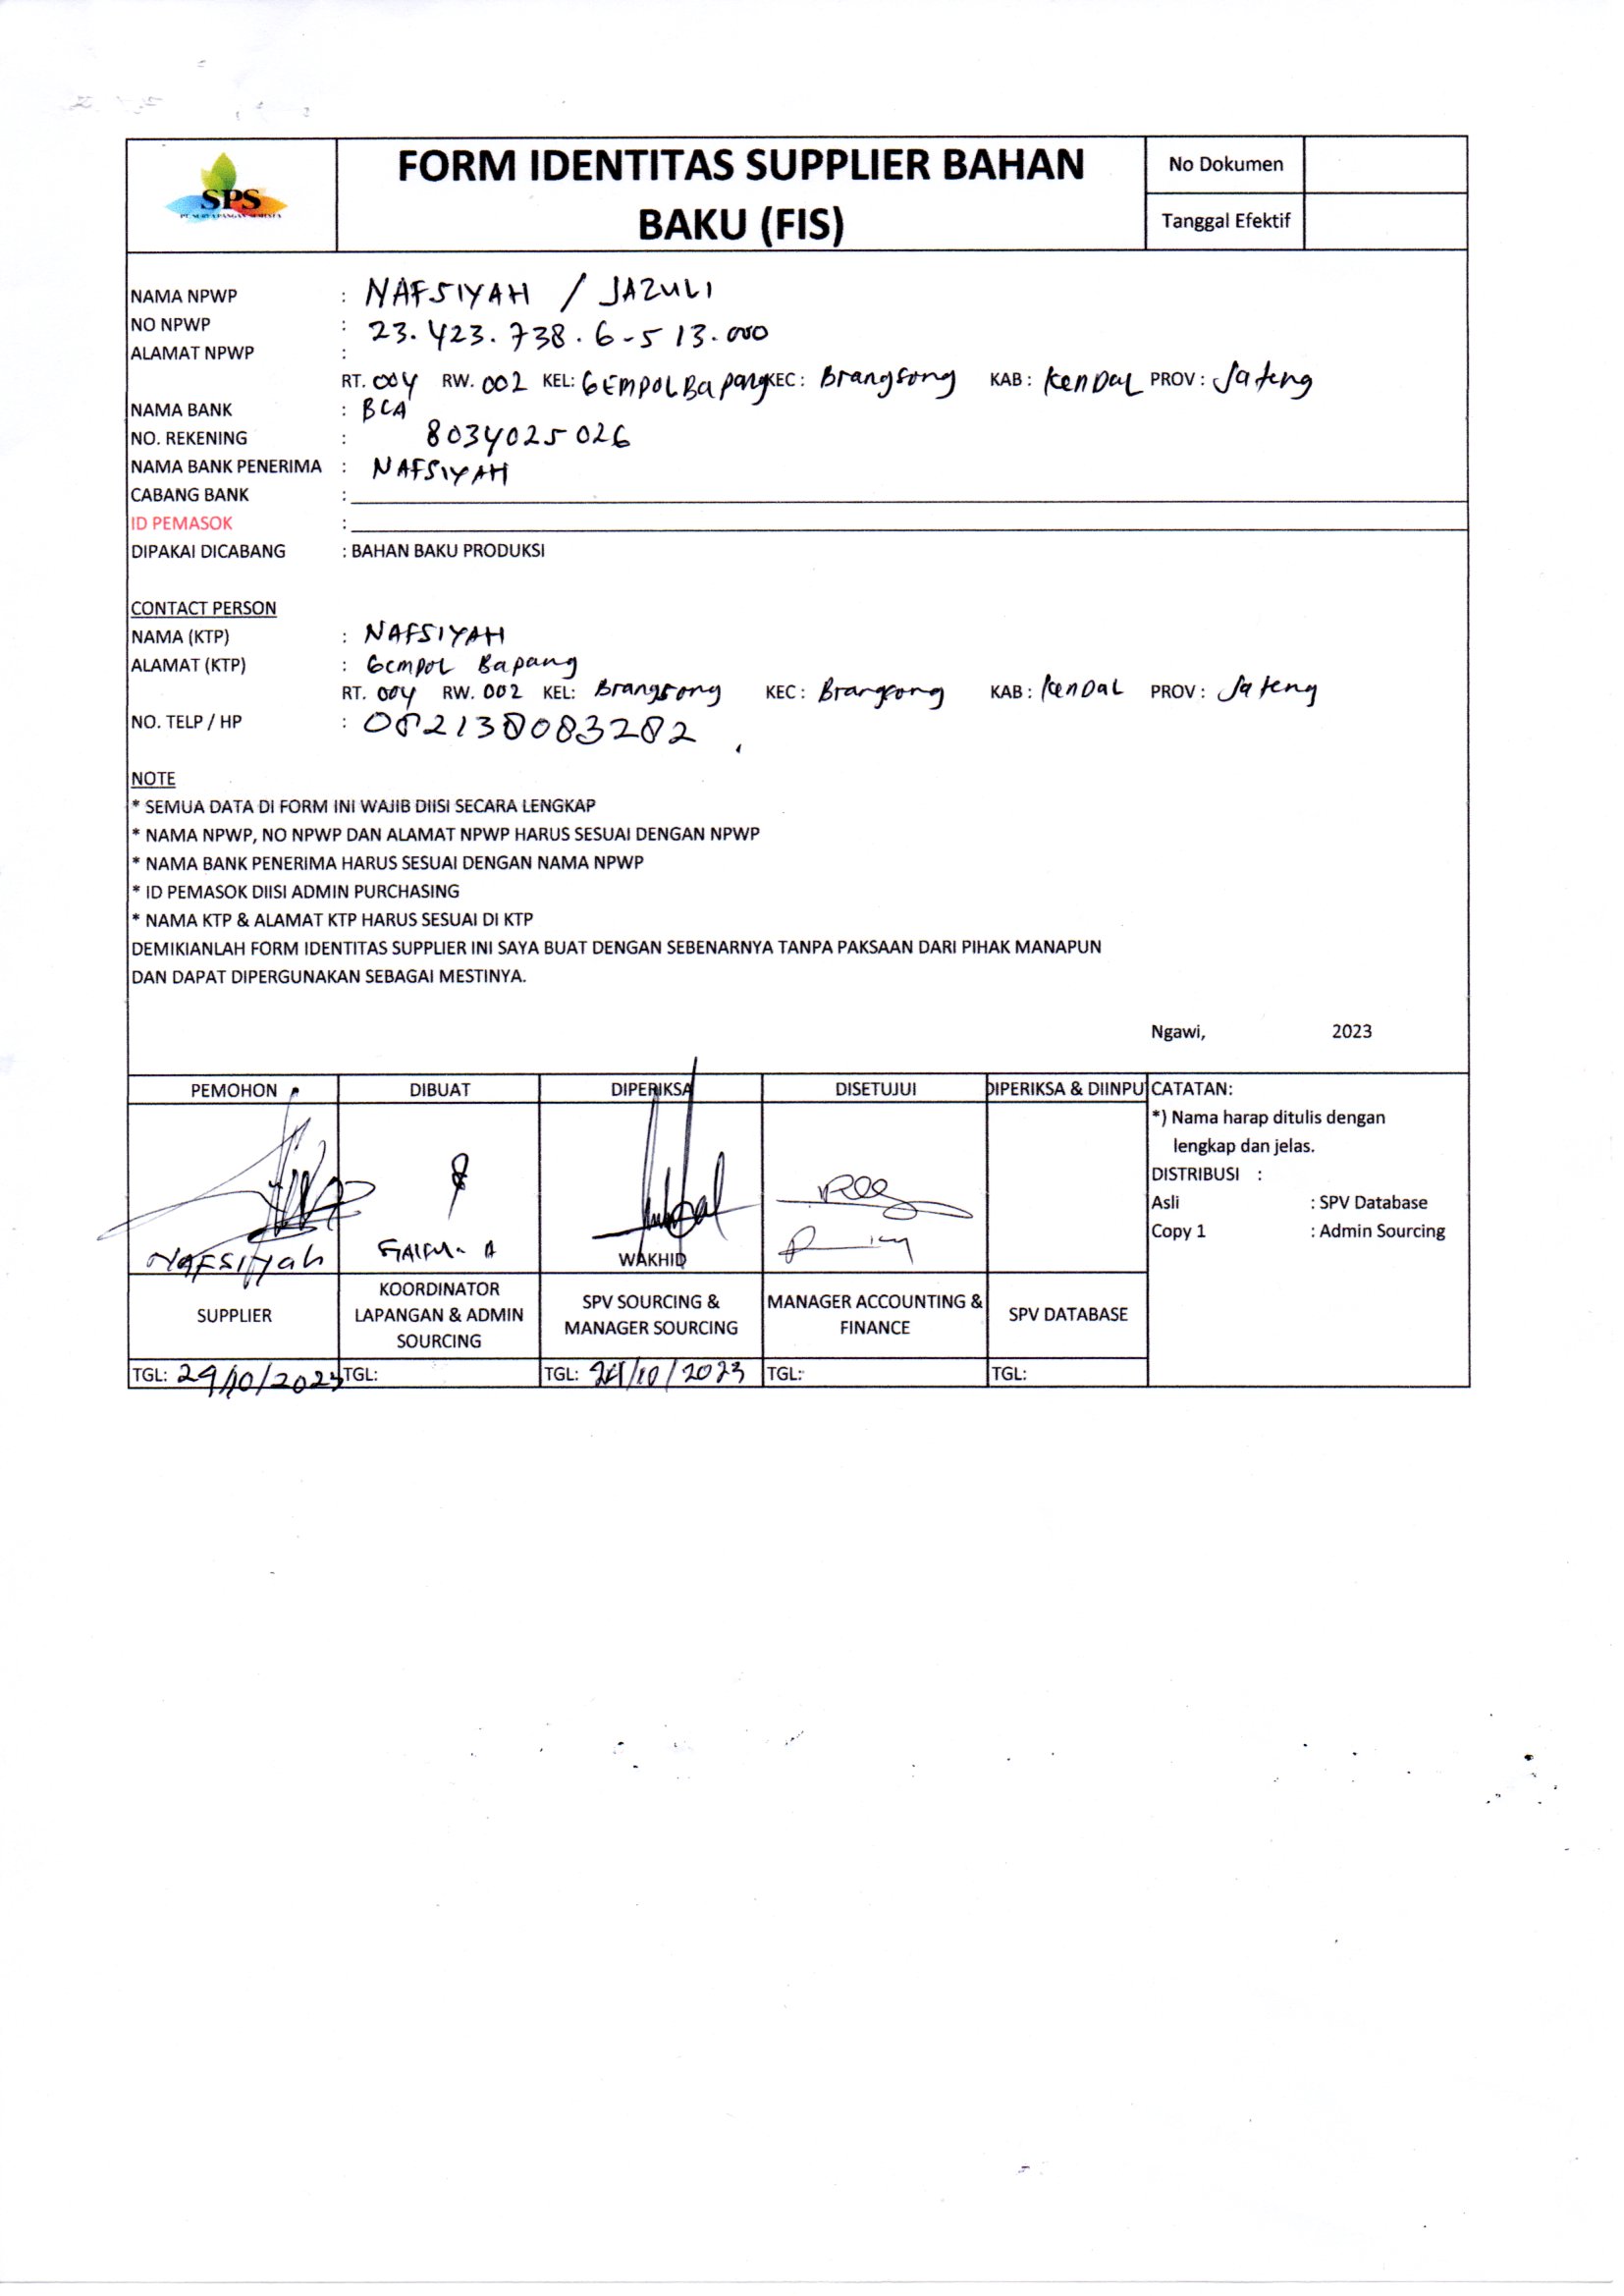 SPS
PT. SURYA PANGAN SEMESTA
FORM IDENTITAS SUPPLIER BAHAN
BAKU (FIS)
No Dokumen
Tanggal Efektif
NAMA NPWP : NAFSIYAH / JAZULI
NO NPWP : 23.423.738.6-513.000
ALAMAT NPWP :
RT. 004 RW. 002 KEL: GEMPOLBapang KEC : Brangsong KAB : KenDaL PROV : Jateng
NAMA BANK : BCA
NO. REKENING : 8034025026
NAMA BANK PENERIMA : NAFSIYAH
CABANG BANK :
ID PEMASOK :
DIPAKAI DICABANG : BAHAN BAKU PRODUKSI
CONTACT PERSON
NAMA (KTP) : NAFSIYAH
ALAMAT (KTP) : Gempol Bapang
RT. 004 RW. 002 KEL: Brangsong KEC : Brangsong KAB : KenDaL PROV : Jateng
NO. TELP / HP : 082138083282
NOTE
* SEMUA DATA DI FORM INI WAJIB DIISI SECARA LENGKAP
* NAMA NPWP, NO NPWP DAN ALAMAT NPWP HARUS SESUAI DENGAN NPWP
* NAMA BANK PENERIMA HARUS SESUAI DENGAN NAMA NPWP
* ID PEMASOK DIISI ADMIN PURCHASING
* NAMA KTP & ALAMAT KTP HARUS SESUAI DI KTP
DEMIKIANLAH FORM IDENTITAS SUPPLIER INI SAYA BUAT DENGAN SEBENARNYA TANPA PAKSAAN DARI PIHAK MANAPUN
DAN DAPAT DIPERGUNAKAN SEBAGAI MESTINYA.
Ngawi, 2023
PEMOHON DIBUAT DIPERIKSA DISETUJUI DIPERIKSA & DIINPU CATATAN:
*) Nama harap ditulis dengan
lengkap dan jelas.
DISTRIBUSI :
Asli : SPV Database
Copy 1 : Admin Sourcing
NAFSIYah WAKHID
SUPPLIER
KOORDINATOR
LAPANGAN & ADMIN
SOURCING
SPV SOURCING &
MANAGER SOURCING
MANAGER ACCOUNTING &
FINANCE
SPV DATABASE
TGL: 29/10/2023 TGL: TGL: /10/2023 TGL: TGL: